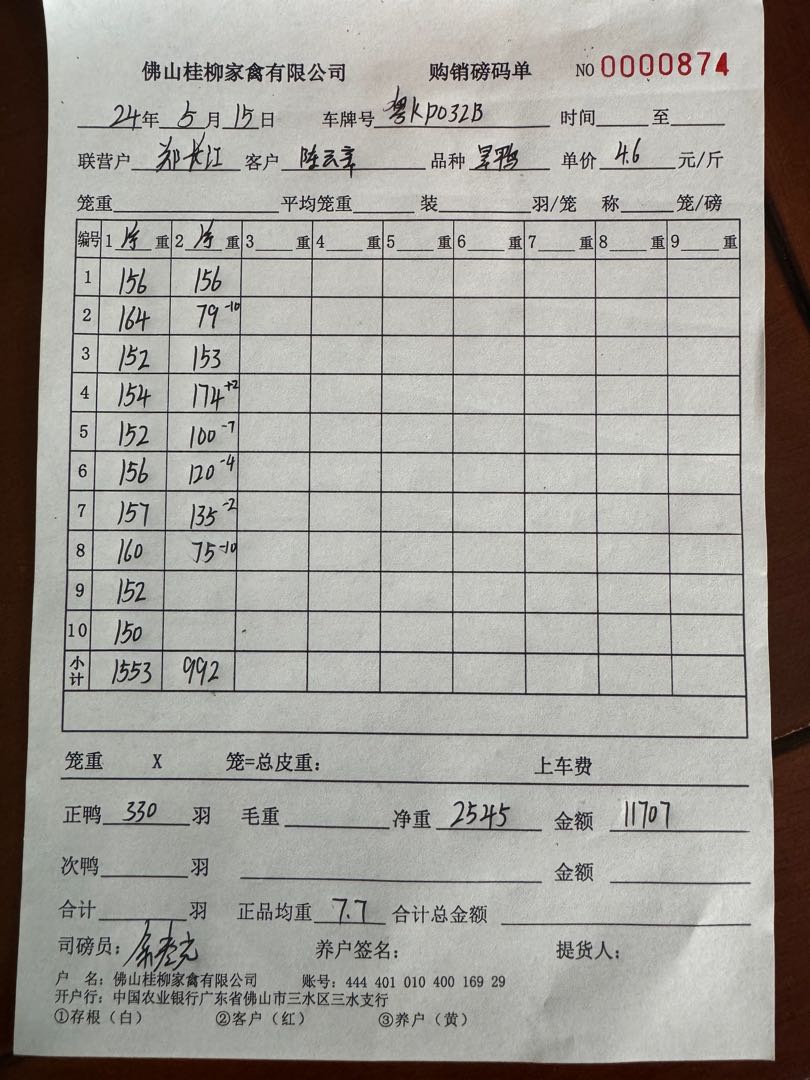 佛山桂柳家禽有限公司 购销磅码单 NO 0000874
24年 5月 15日 车牌号 粤KP032B 时间 至
联营户 郑长江 客户 陈云章 品种 旱鸭 单价 4.6 元/斤
笼重 平均笼重 装 羽/笼 称 笼/磅
编号 1 净 重 2 净 重 3 重 4 重 5 重 6 重 7 重 8 重 9 重
1 156 156
2 164 79 -10
3 152 153
4 154 174 +2
5 152 100 -7
6 156 120 -4
7 157 135 -2
8 160 75 -10
9 152
10 150
小计 1553 992
笼重 X 笼=总皮重： 上车费
正鸭 330 羽 毛重 净重 2545 金额 11707
次鸭 羽 金额
合计 羽 正品均重 7.7 合计总金额
司磅员： 养户签名： 提货人：
户 名：佛山桂柳家禽有限公司 账号：444 401 010 400 169 29
开户行：中国农业银行广东省佛山市三水区三水支行
①存根（白） ②客户（红） ③养户（黄）